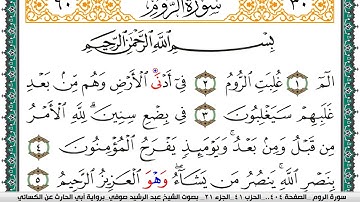 ٦٠ سُورَةُ الرُّومِ ٣٠
بِسْمِ اللَّهِ الرَّحْمَٰنِ الرَّحِيمِ
الٓمٓ ١ غُلِبَتِ الرُّومُ ٢ فِىٓ أَدْنَى الْأَرْضِ وَهُم مِّنۢ بَعْدِ
غَلَبِهِمْ سَيَغْلِبُونَ ٣ فِى بِضْعِ سِنِينَ ۗ لِلَّهِ الْأَمْرُ
مِن قَبْلُ وَمِنۢ بَعْدُ ۚ وَيَوْمَئِذٍ يَفْرَحُ الْمُؤْمِنُونَ ٤
بِنَصْرِ اللَّهِ ۚ يَنصُرُ مَن يَشَآءُ ۖ وَهْوَ الْعَزِيزُ الرَّحِيمُ ٥
سورة الروم الصفحة ٤٠٤.. الحزب ٤١ الجزء ٢١ بصوت الشيخ عبد الرشيد صوفي برواية أبي الحارث عن الكسائي